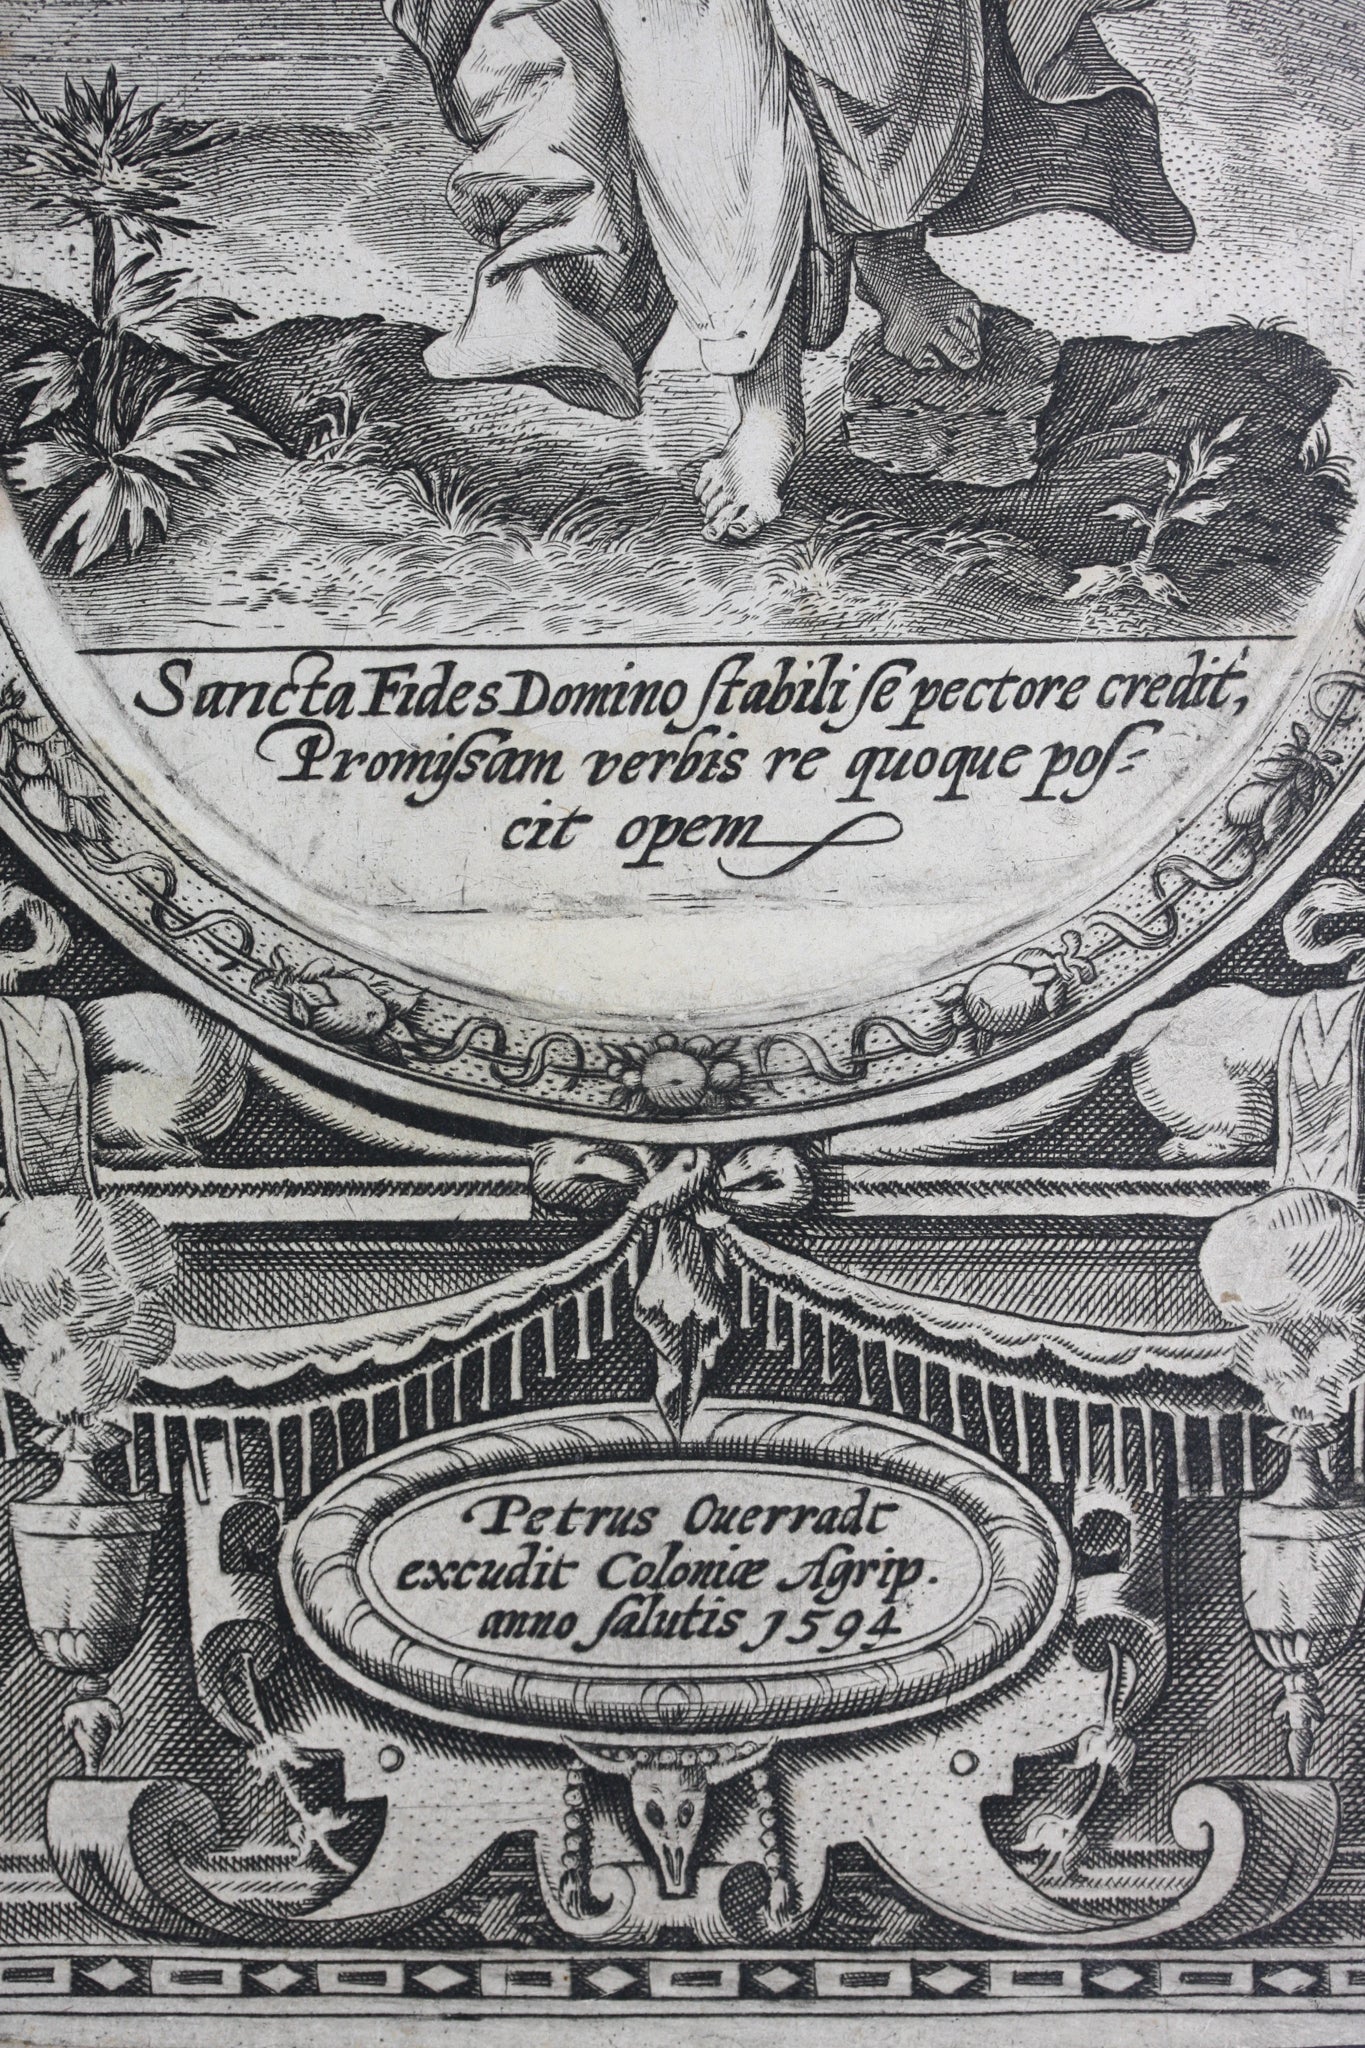 Sancta Fides Domino ſtabili ſe pectore credit,
Promiſsam verbis re quoque poſ=
cit opem
Petrus Ouerradt
excudit Coloniæ Agrip.
anno ſalutis 1594